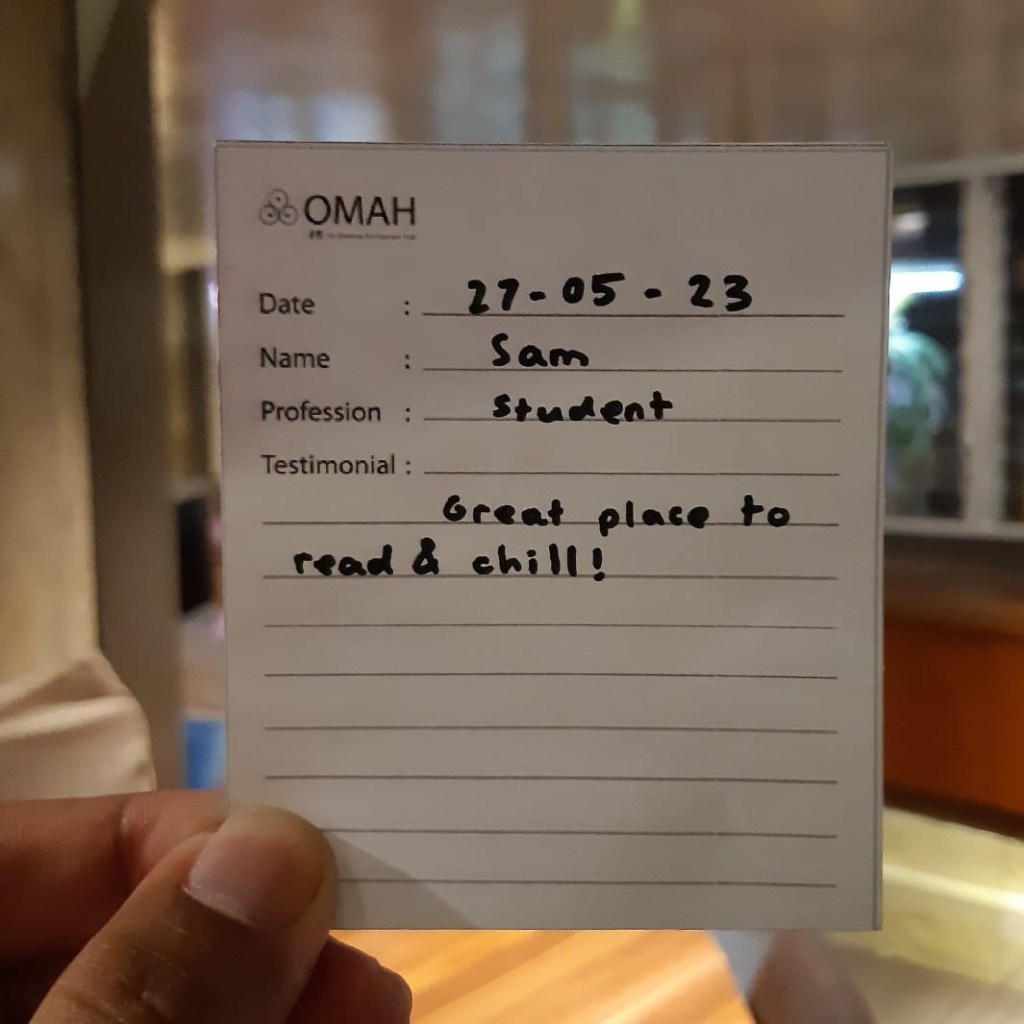 OMAH
Date : 27-05-23
Name : Sam
Profession : Student
Testimonial :
Great place to
read & chill!